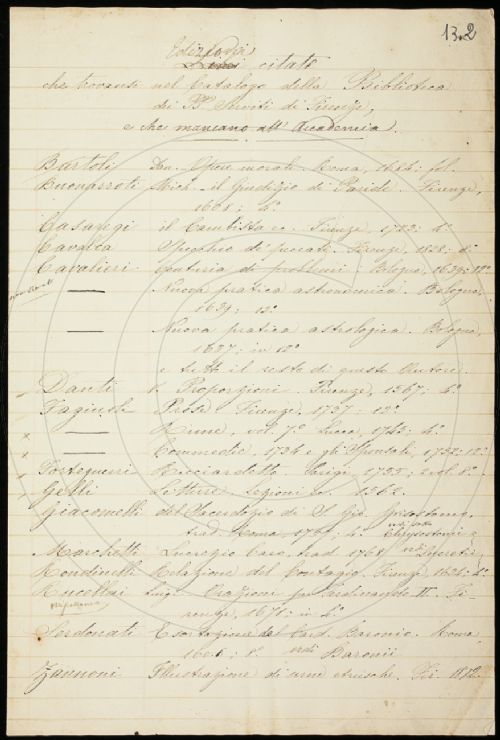 13.2
Edizioni
citate
che trovansi nel Catalogo della Biblioteca
dei PP. Serviti di Firenze,
e che mancano all'Accademia.
Bartoli Dan. Opere morali. Roma, 1684; fol.
Buonarroti Mich. il Giudizio di Paride. Firenze,
1608; 4.°
Casaregi il Cambista ec. Firenze, 1723; 4.°
Cavalca Specchio de' peccati. Firenze, 1828; 8.°
Cavalieri Centuria di problemi. Bologna, 1639; 12.°
— Nuova pratica astronomica. Bologna,
1639; 12.°
— Nuova pratica astrologica. Bologna,
1637; in 12.°
e tutto il resto di questo Autore.
Danti Proporzioni. Firenze, 1567; 4.°
Fagiuoli Prose. Firenze, 1737; 12.°
— Rime, vol. 7.° Lucca, 1743; 4.°
— Commedie, 1734 e gli Sponsali, 1732; 12.°
Forteguerri Ricciardetto. Parigi, 1735; 2 vol. 8.°
Gelli Letture. Lezioni ec. 1562.
Giacomelli del Sacerdozio di S. Gio. Grisostomo,
trad. Roma, 4.° Chrysostomi
Marchetti Lucrezio Caro, trad. 1768. vedi Lucretii
Rondinelli Relazione del Contagio. Firenze, 1634; 4.°
Rucellai Luigi. Orazioni per Ferdinando II. Fi-
renze, 1671; in 4.°
Serdonati Esortazione del Card. Baronio. Roma,
8.° vedi Baronii
Zannoni Illustrazione di urne etrusche. Fir. 1812.